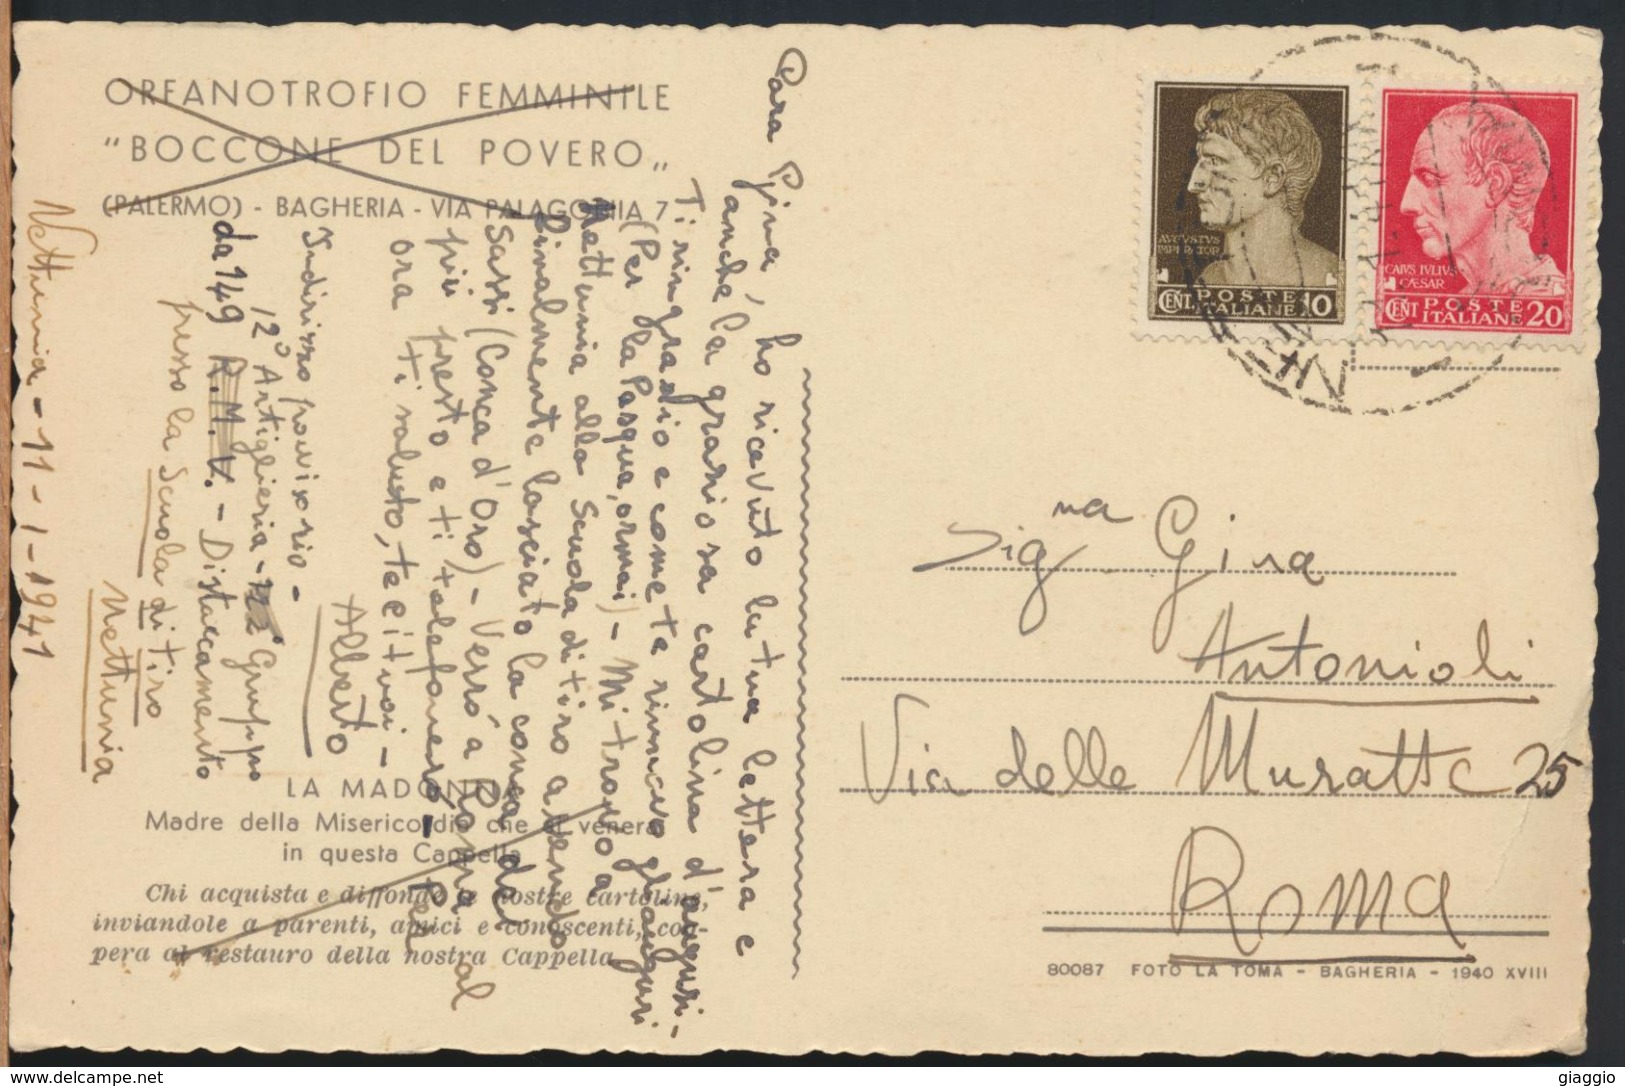 ORFANOTROFIO FEMMINILE
"BOCCONE DEL POVERO„
(PALERMO) - BAGHERIA - VIA PALAGONIA 7
Nettunia - 11 - 1 - 1941
Cara Gina, ho ricevuto la tua lettera e
anche la graziosa cartolina d'auguri -
Ti ringrazio e come te rinnovo gli auguri
(Per la Pasqua, ormai) - Mi trovo a
Nettunia alla Scuola di tiro avendo
finalmente lasciato la conca dei
Sassi (Conca d'Oro) - Verrò a Roma al
più presto e ti telefonerò - Per
ora ti saluto, te e i tuoi -
Alberto
Indirizzo provvisorio -
12° Artiglieria - Gruppo
da 149 - Distaccamento
presso la Scuola di tiro
Nettunia
LA MADONNA
Madre della Misericordia che si venera
in questa Cappella
Chi acquista e diffonde le nostre cartoline,
inviandole a parenti, amici e conoscenti, coo-
pera al restauro della nostra Cappella
AVGVSTVS
IMPERATOR
CENT. POSTE ITALIANE 10
CAIVS IVLIVS
CÆSAR
CENT POSTE ITALIANE 20
Sig.na Gina
Antonioli
Via delle Muratte 25
ROMA
80087 FOTO LA TOMA - BAGHERIA - 1940 XVIII
delcampe.net
giaggio